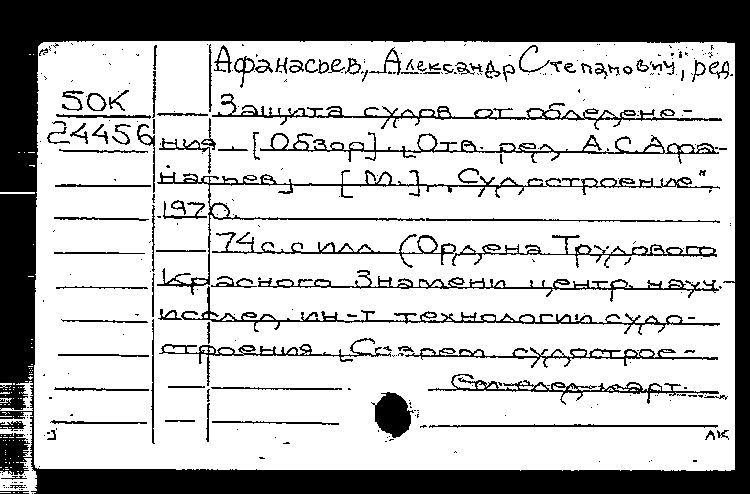 Афанасьев, Александр Степанович, ред.
50К
24456
Защита судов от обледене-
ния. [Обзор]. [Отв. ред. А.С.Афа-
насьев] [М.], "Судостроение",
1970.
74 с. с илл. (Ордена Трудового
Красного Знамени центр. науч.-
исслед. ин-т технологии судо-
строения. [Соврем. судострое-
См. след. карт.
ЛК